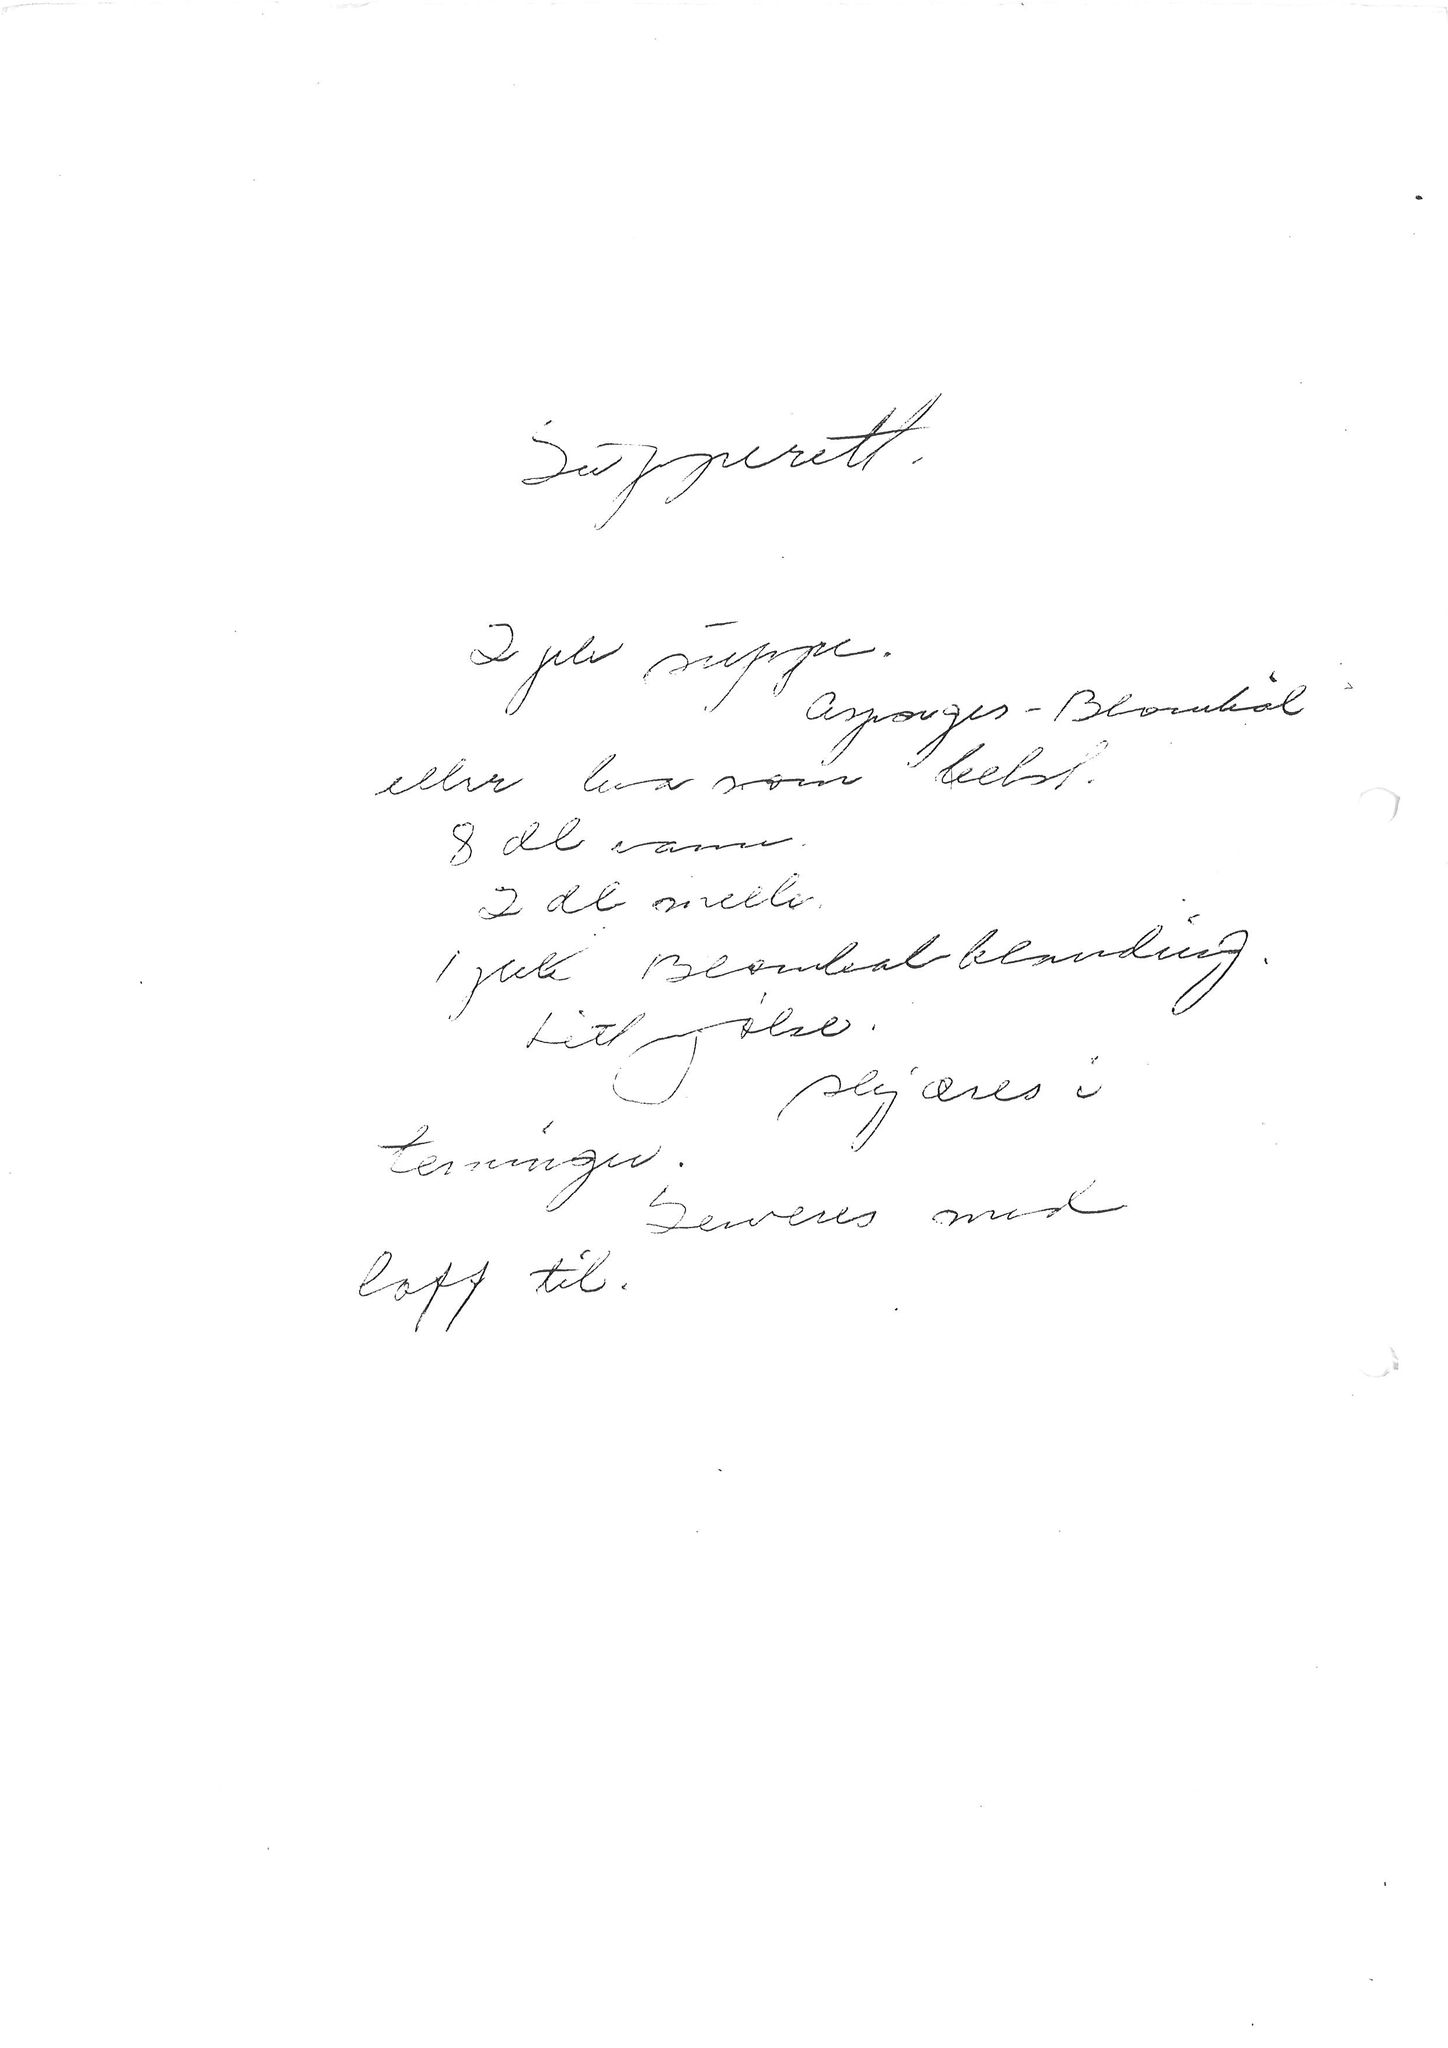 Supperett.
2 pk suppe.
Asparges - Blomkål
eller hva som helst.
8 dl vann.
2 dl melk.
1 pk Blomkålblanding.
Litt pølse.
skjæres i
terninger.
Serveres med
loff til.